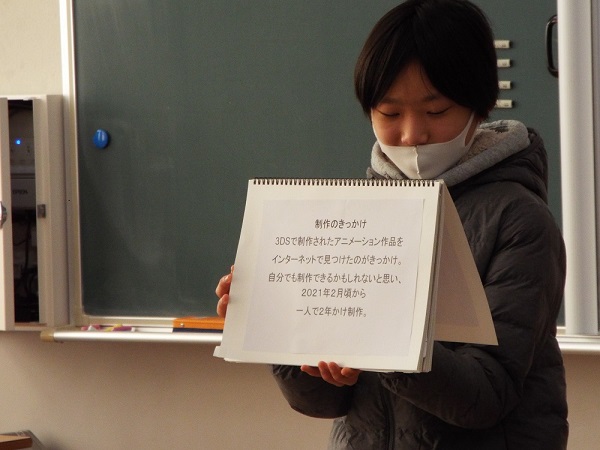 制作のきっかけ
3DSで制作されたアニメーション作品を
インターネットで見つけたのがきっかけ。
自分でも制作できるかもしれないと思い、
2021年2月頃から
一人で2年かけ制作。